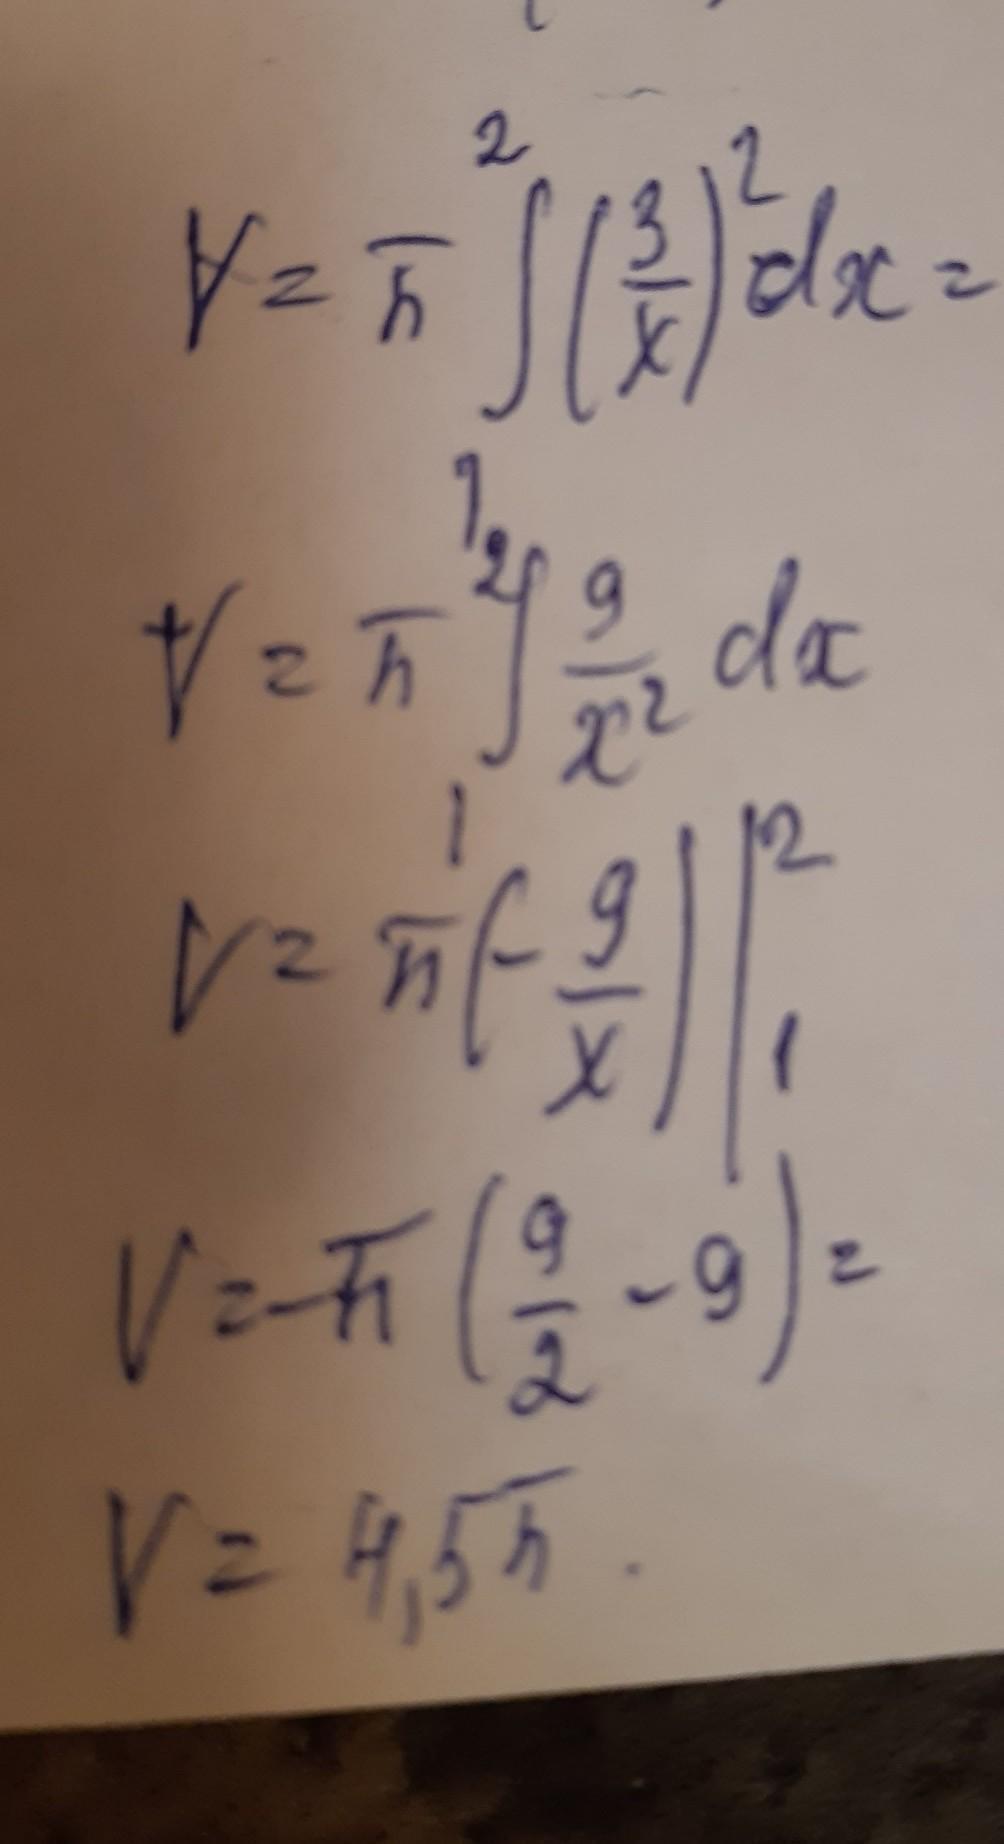 V = π ∫₁² (3/x)² dx =
V = π ∫₁² 9/x² dx
V = π (- 9/x) |₁²
V = -π (9/2 - 9) =
V = 4,5π.